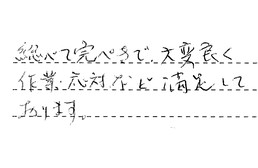 総べて完ぺきで、大変良く
作業、応対など満足して
おります。